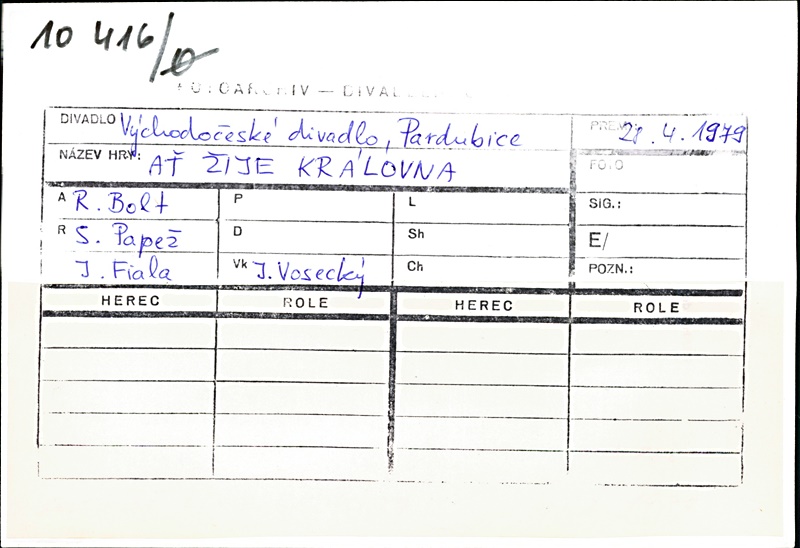 10 416/0
FOTOARCHIV — DIVADELNÍ
DIVADLO Východočeské divadlo, Pardubice PREM. 28.4.1979
NÁZEV HRY: AŤ ŽIJE KRÁLOVNA FOTO
A R. Bolt P L SIG.:
R S. Papež D Sh E/
J. Fiala Vk J. Vosecký Ch POZN.:
HEREC ROLE HEREC ROLE